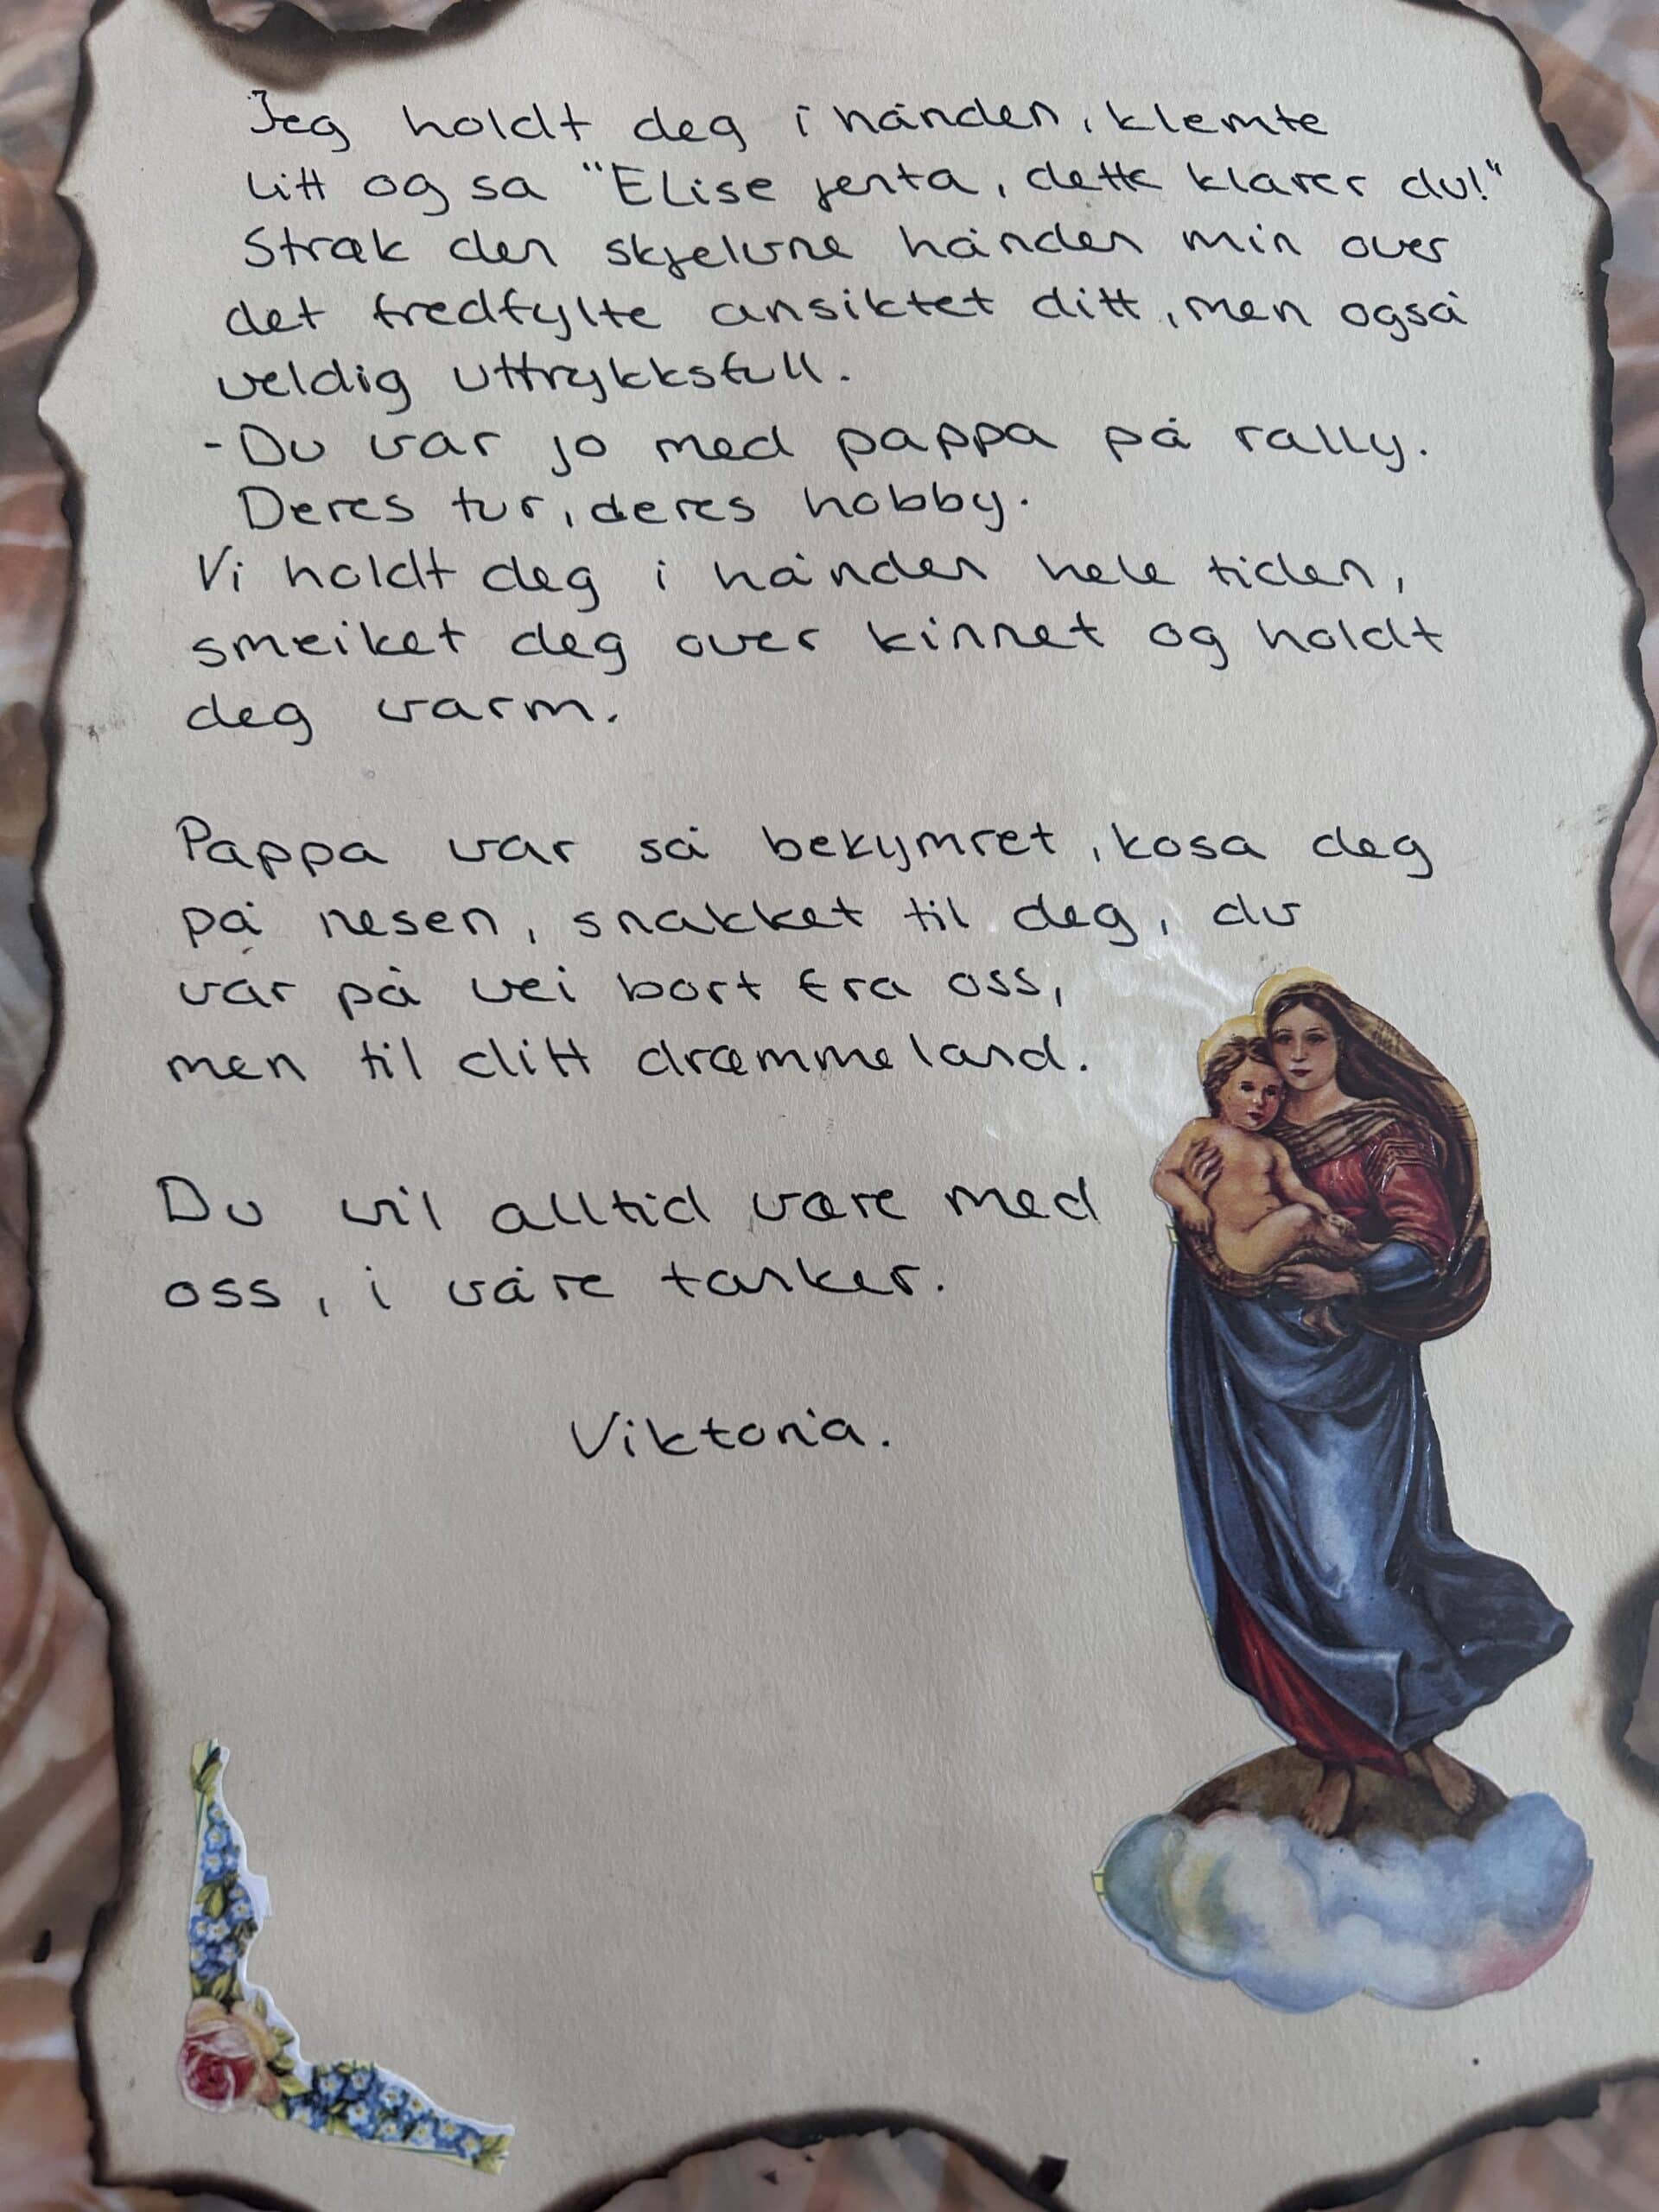 Jeg holdt deg i hånden, klemte
litt og sa "Elise jenta, dette klarer du!"
Strøk den skjelvne hånden min over
det fredfylte ansiktet ditt, men også
veldig uttrykksfull.
- Du var jo med pappa på rally.
Deres tur, deres hobby.
Vi holdt deg i hånden hele tiden,
smeiket deg over kinnet og holdt
deg varm.
Pappa var så bekymret, kosa deg
på nesen, snakket til deg, du
var på vei bort fra oss,
men til ditt drømmeland.
Du vil alltid være med
oss, i våre tanker.
Viktoria.